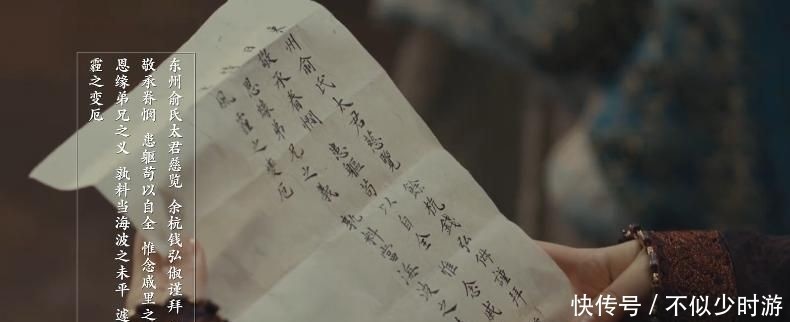 东州俞氏太君慈览 余杭钱弘俶谨拜
敬承眷悯 患躯苟以自全 惟念戚里之
恩缘弟兄之义 孰料当海波之未平 遽
霾之变厄
州俞氏太君慈覽 餘杭錢弘俶謹拜
敬承眷憫 患軀苟以自全 惟念戚
恩緣弟兄之義 孰料當海波之
風霾之變厄
快传号 / 不似少时游